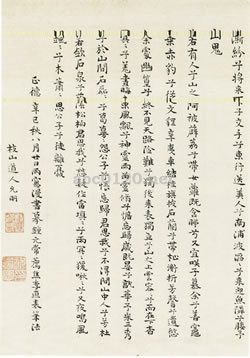 澌紛兮將來下子交手兮東行送美人兮南浦波滔滔兮來迎魚隣隣兮媵予
山鬼
若有人兮山之阿被薜荔兮帶女蘿既含睇兮又宜笑子慕余兮善窈
窕乘赤豹兮從文狸辛夷車兮結桂旗被石蘭兮帶杜衡折芳馨兮遺所思
余處幽篁兮終不見天路險難兮獨後來表獨立兮山之上雲容容兮而在下杳
冥冥兮羌晝晦東風飄兮神靈雨留靈脩兮憺忘歸歲既晏兮孰華予采三秀
兮於山間石磊磊兮葛蔓蔓怨公子兮悵忘歸君思我兮不得閒山中人兮芳杜
若飲石泉兮蔭松柏君思我兮然疑作靁填填兮雨冥冥猨啾啾兮又夜鳴風
颯颯兮木蕭蕭思公子兮徒離憂
正德辛巳秋八月廿日雨窗書鍾元常筆法
枝山道人允明